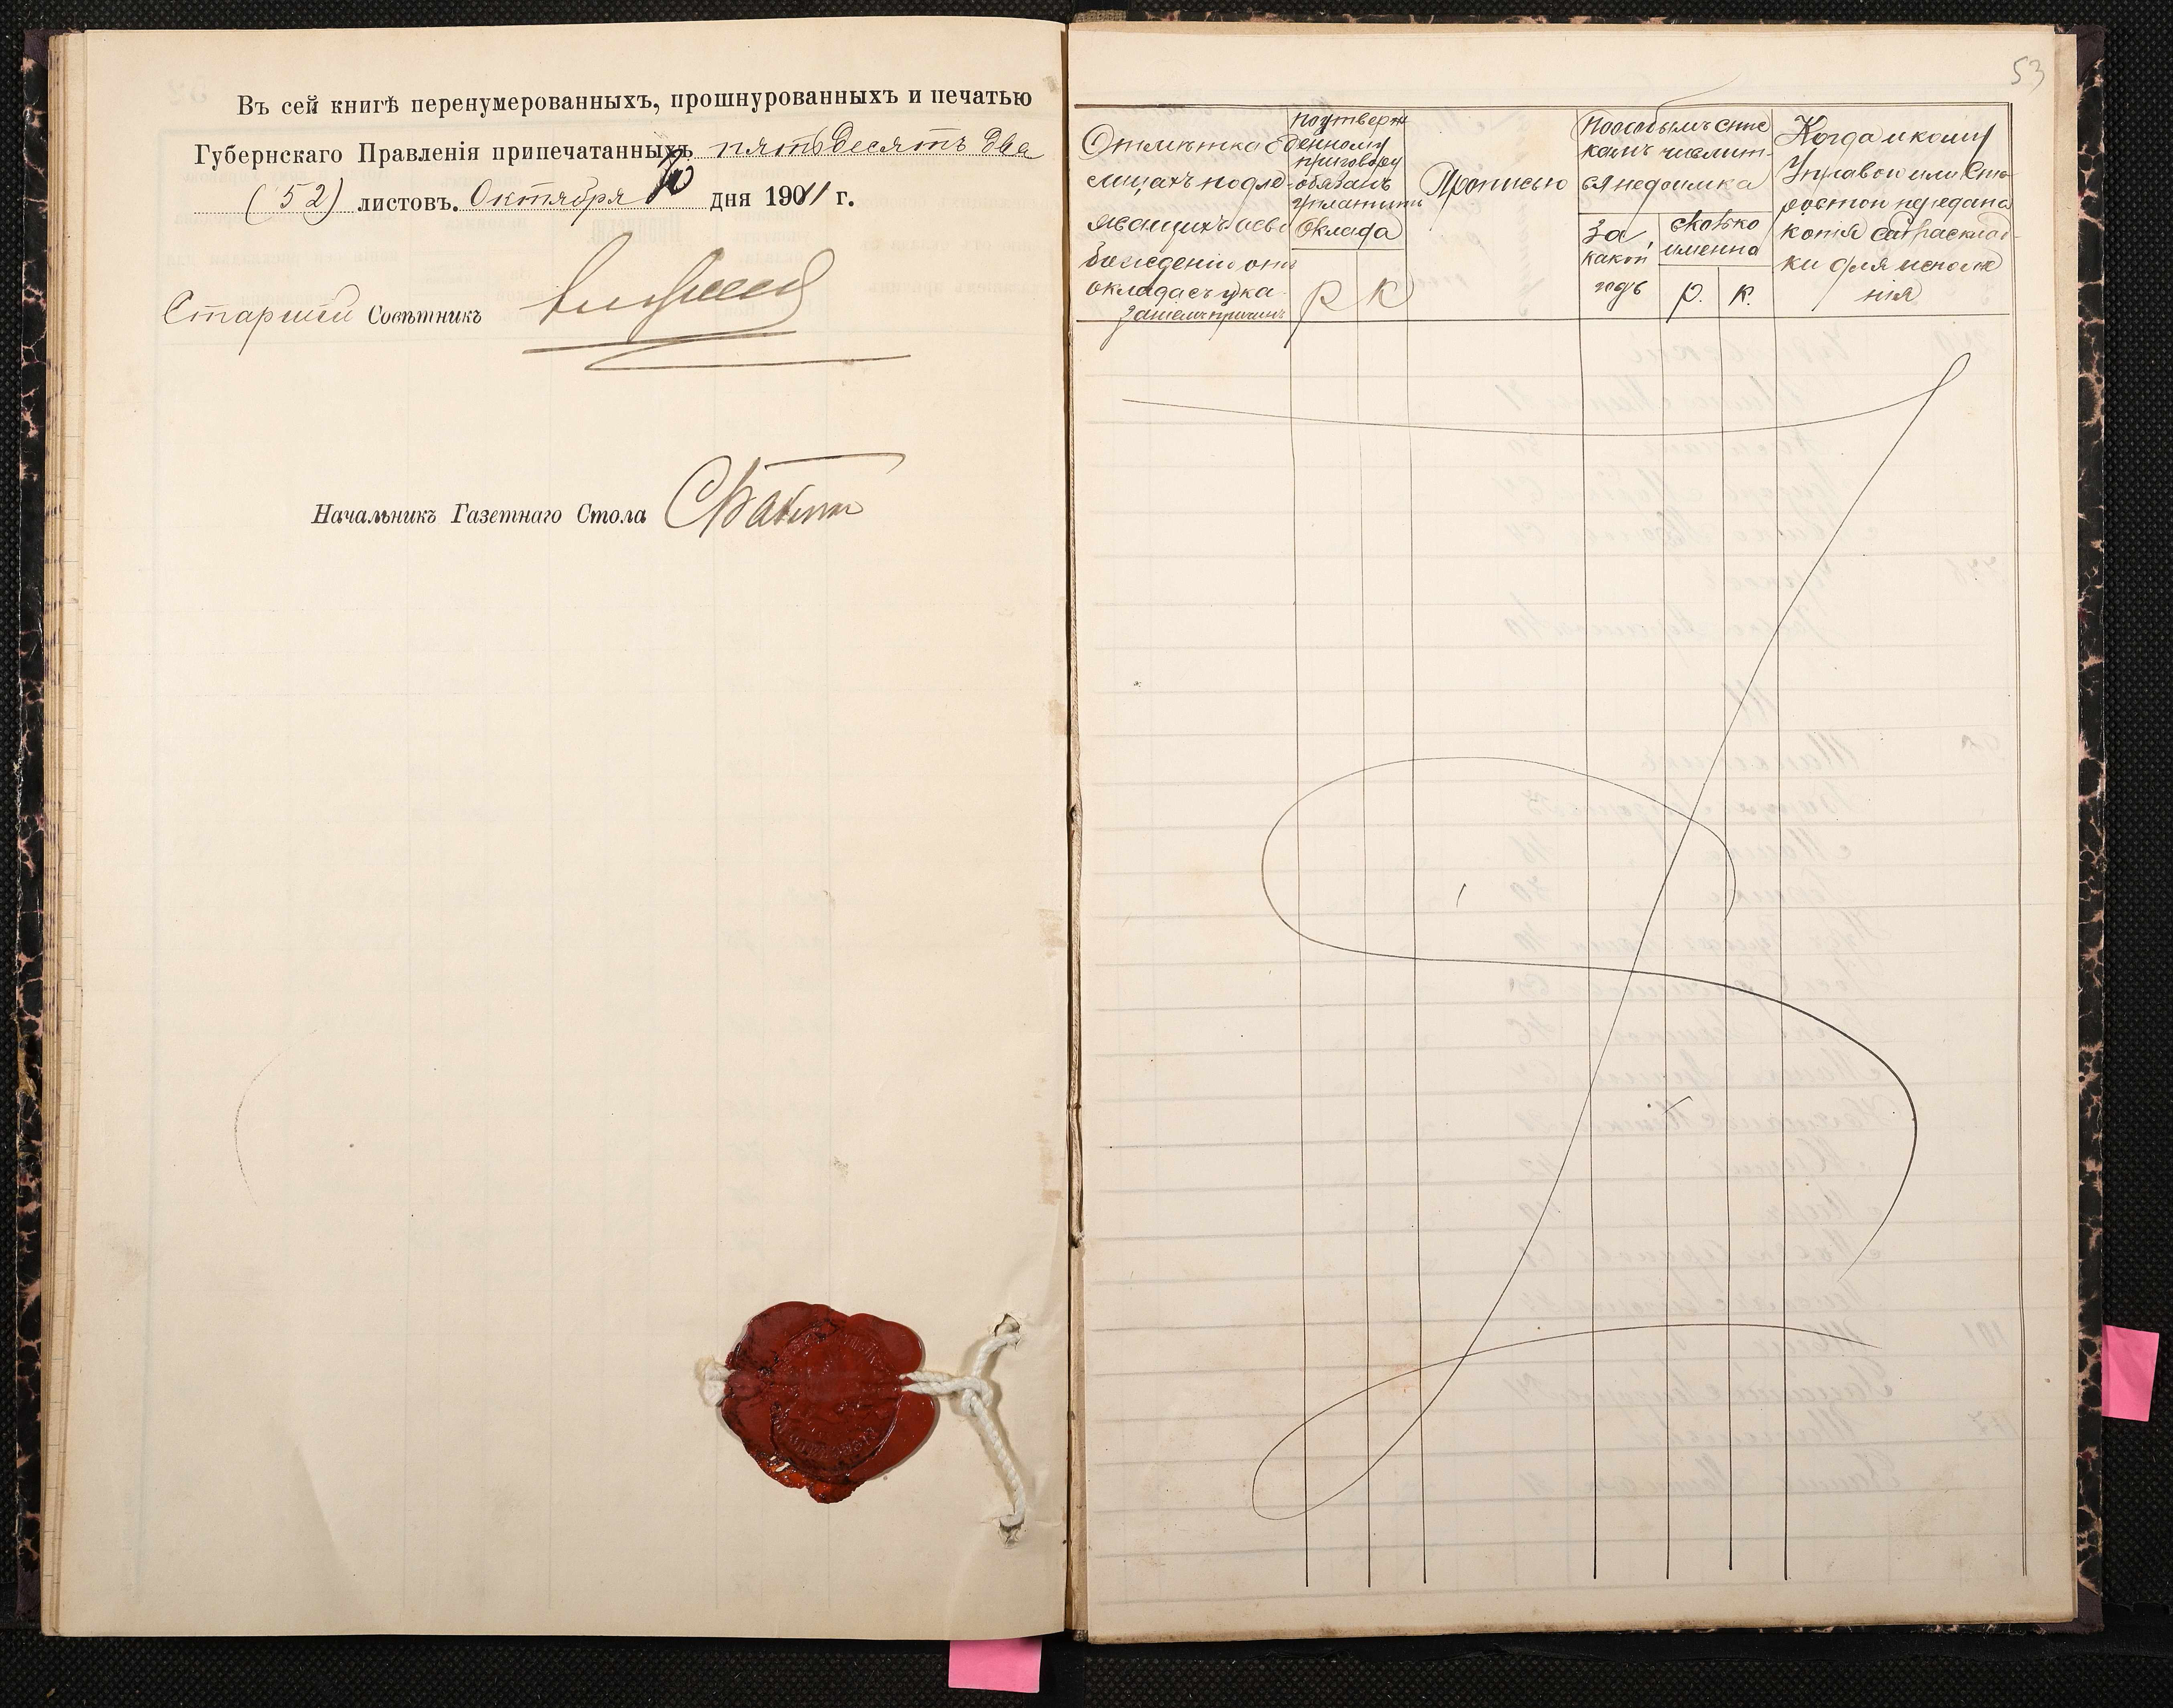 Въ сей книгѣ перенумерованныхъ, прошнурованныхъ и печатью
Губернскаго Правленія припечатанныхъ пятьдесятъ два
(52) листовъ. Октября дня 1911 г.
Старшій Совѣтникъ
Начальникъ Газетнаго Стола
53
Отмѣтка о
лицахъ подле-
жащихъ осво
божденію отъ
оклада съ ука-
заніемъ причинъ
По утверж
денному
приговору
обязанъ
уплатить
Оклада
Р К
Прописью
По особымъ спис
камъ числит-
ся недоимка
За
какой
годъ
сколько
именно
р. к.
Когда и кому
Управою или Ста-
ростой передана
копія съ расклад-
ки для исполне
нія